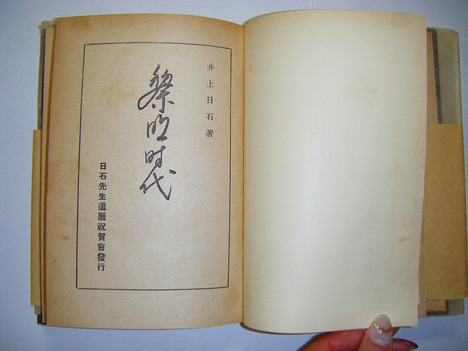 井上日石著
黎明时代
日石先生還曆祝賀會發行